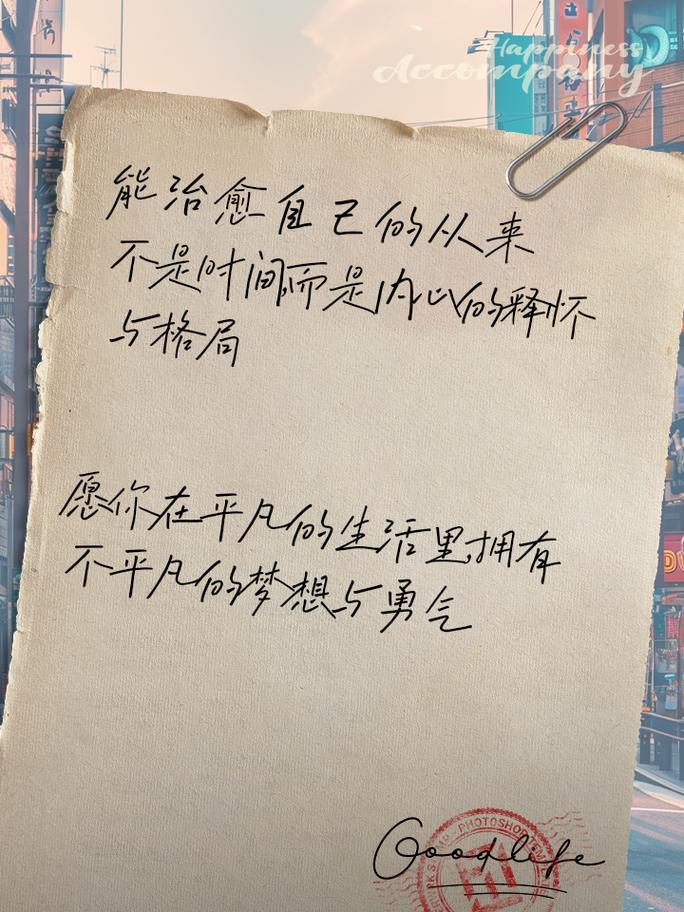 Happiness
Accompany
能治愈自己的从来
不是时间而是内心的释怀
与格局
愿你在平凡的生活里拥有
不平凡的梦想与勇气
PHOTOSHOP
Goodlife